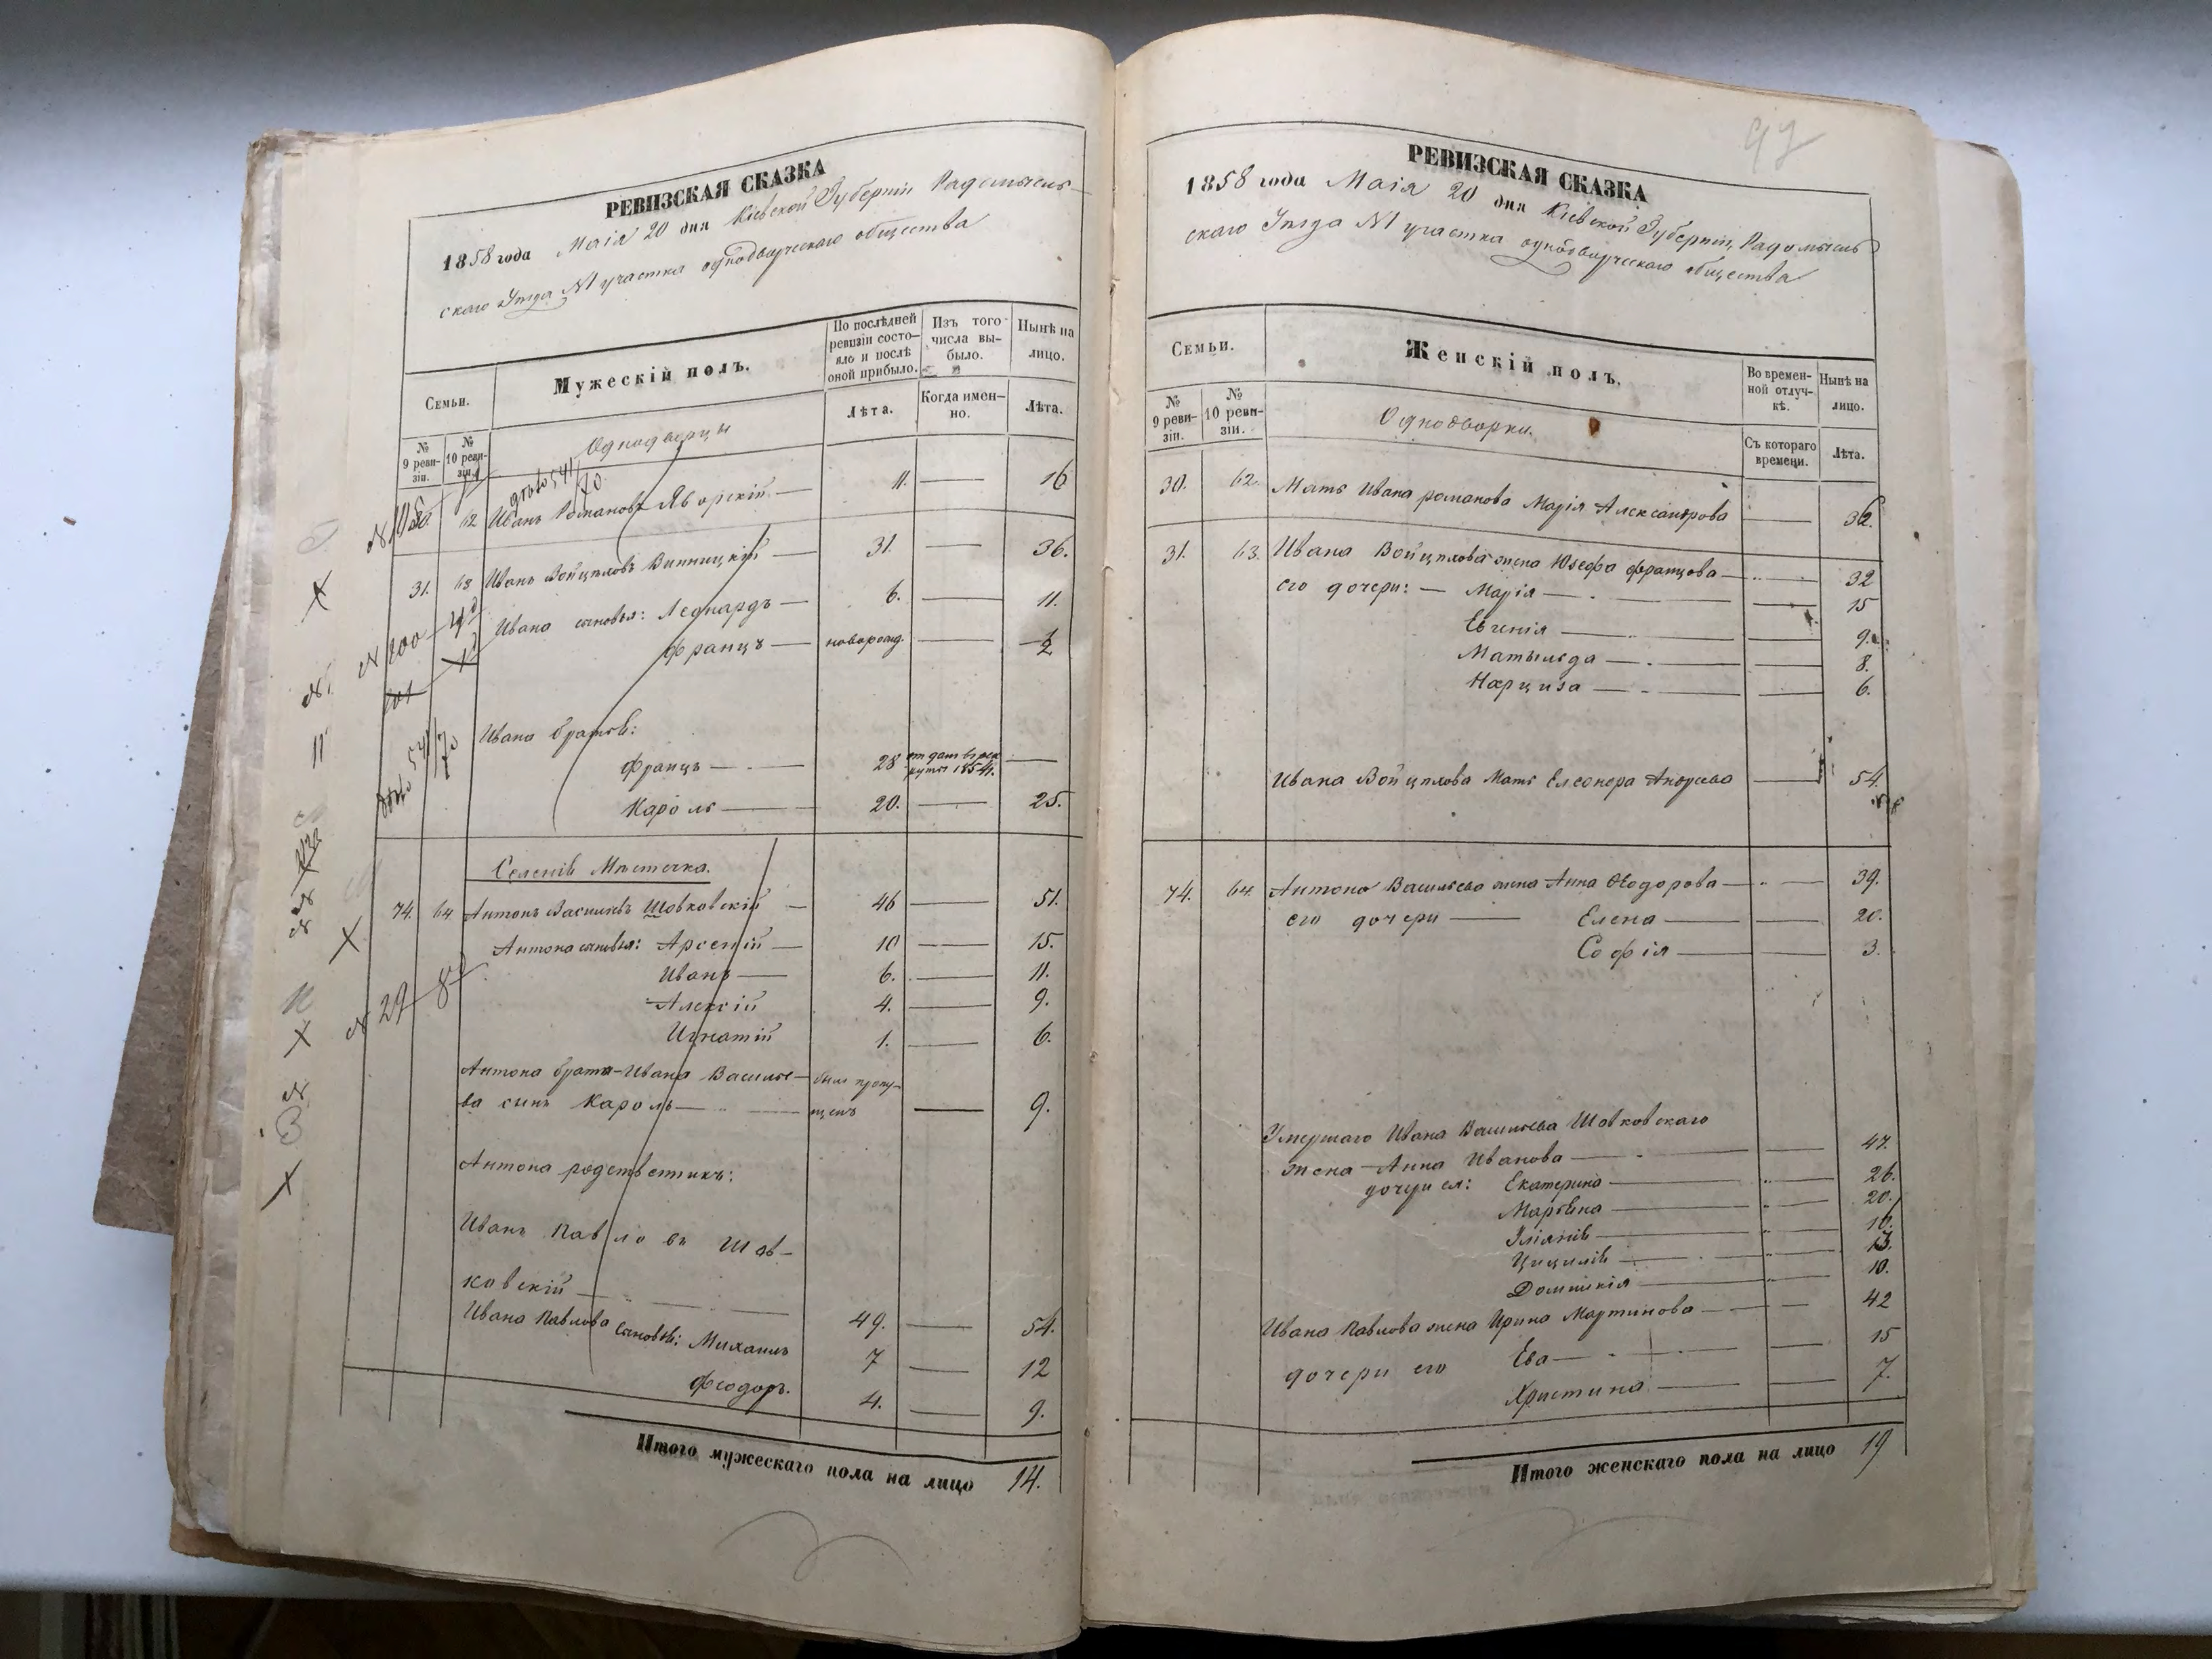 РЕВИЗСКАЯ СКАЗКА
1858 года Маія 20 дня Кіевской Губерніи Радомысль-
скаго Уѣзда №1 участка однодворческаго общества
Семьи.
Мужескій полъ.
По послѣдней ревизіи состо-яло и послѣ оной прибыло.
Изъ того числа вы-было.
Нынѣ на лицо.
№ 9 реви-зіи.
№ 10 реви-зіи.
Однодворцы
Лѣта.
Когда имен-но.
Лѣта.
541/70
30. 62 Иванъ Романовъ Яворскій. 11. 16
31. 63 Иванъ Войцѣховъ Винницкій 31. 36.
Ивана сыновья: Леонардъ 6. 11.
№ 200
Францъ новорожд. ½
201
Ивана братья:
541/70
Францъ 28 отданъ въ рек-руты 1854г.
Кароль 20. 25.
Селенія Мѣстечка.
74. 64 Антонъ Васильевъ Шовковскій 46 51.
Антона сыновья: Арсеній 10 15.
Иванъ 6. 11.
Алексій 4. 9.
№ 29 8
Игнатій 1. 6.
Антона брата Ивана Василье- былъ пропу-
ва сынъ Кароль щенъ 9.
Антона родственникъ:
Иванъ Павловъ Шов-
ковскій 49. 54.
Ивана Павлова сыновья: Михаилъ 7 12
Феодоръ. 4. 9.
Итого мужескаго пола на лицо 14.
97
РЕВИЗСКАЯ СКАЗКА
1858 года Маія 20 дня Кіевской Губерніи, Радомысль-
скаго Уѣзда №1 участка однодворческаго общества
Семьи.
Женскій полъ.
Во времен-ной отлуч-кѣ.
Нынѣ на лицо.
№ 9 реви-зіи.
№ 10 реви-зіи.
Однодворки.
Съ котораго времени.
Лѣта.
30. 62. Мать Ивана романова Марія Александрова 36.
31. 63. Ивана Войцѣхова жена Юзефа францова 32
его дочери: Марія 15
Евгенія 9.
Матыльда 8.
Нарциза 6.
Ивана Войцѣхова Мать Елеонора Андреева 54.
74. 64. Антона Васильева жена Анна Ѳеодорова 39.
его дочери Елена 20.
Софія 3.
Умершаго Ивана Васильева Шовковскаго
жена Анна Иванова 47.
дочери ея: Екатерина 26.
Марьяна 20.
16.
Цицилія 13.
Доминікія 10.
Ивана Павлова жена Ирина Мартинова 42
дочери его Ева 15
Христина 7.
Итого женскаго пола на лицо 19